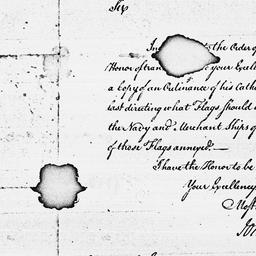 Sir
In the Order of
Honor of tran your Excelle
a Copy of an Ordinance of his Catho
last directing what Flags should
the Navy and Merchant Ships of
of those Flags annexed.—
I have the Honor to be
Your Excellency
Most